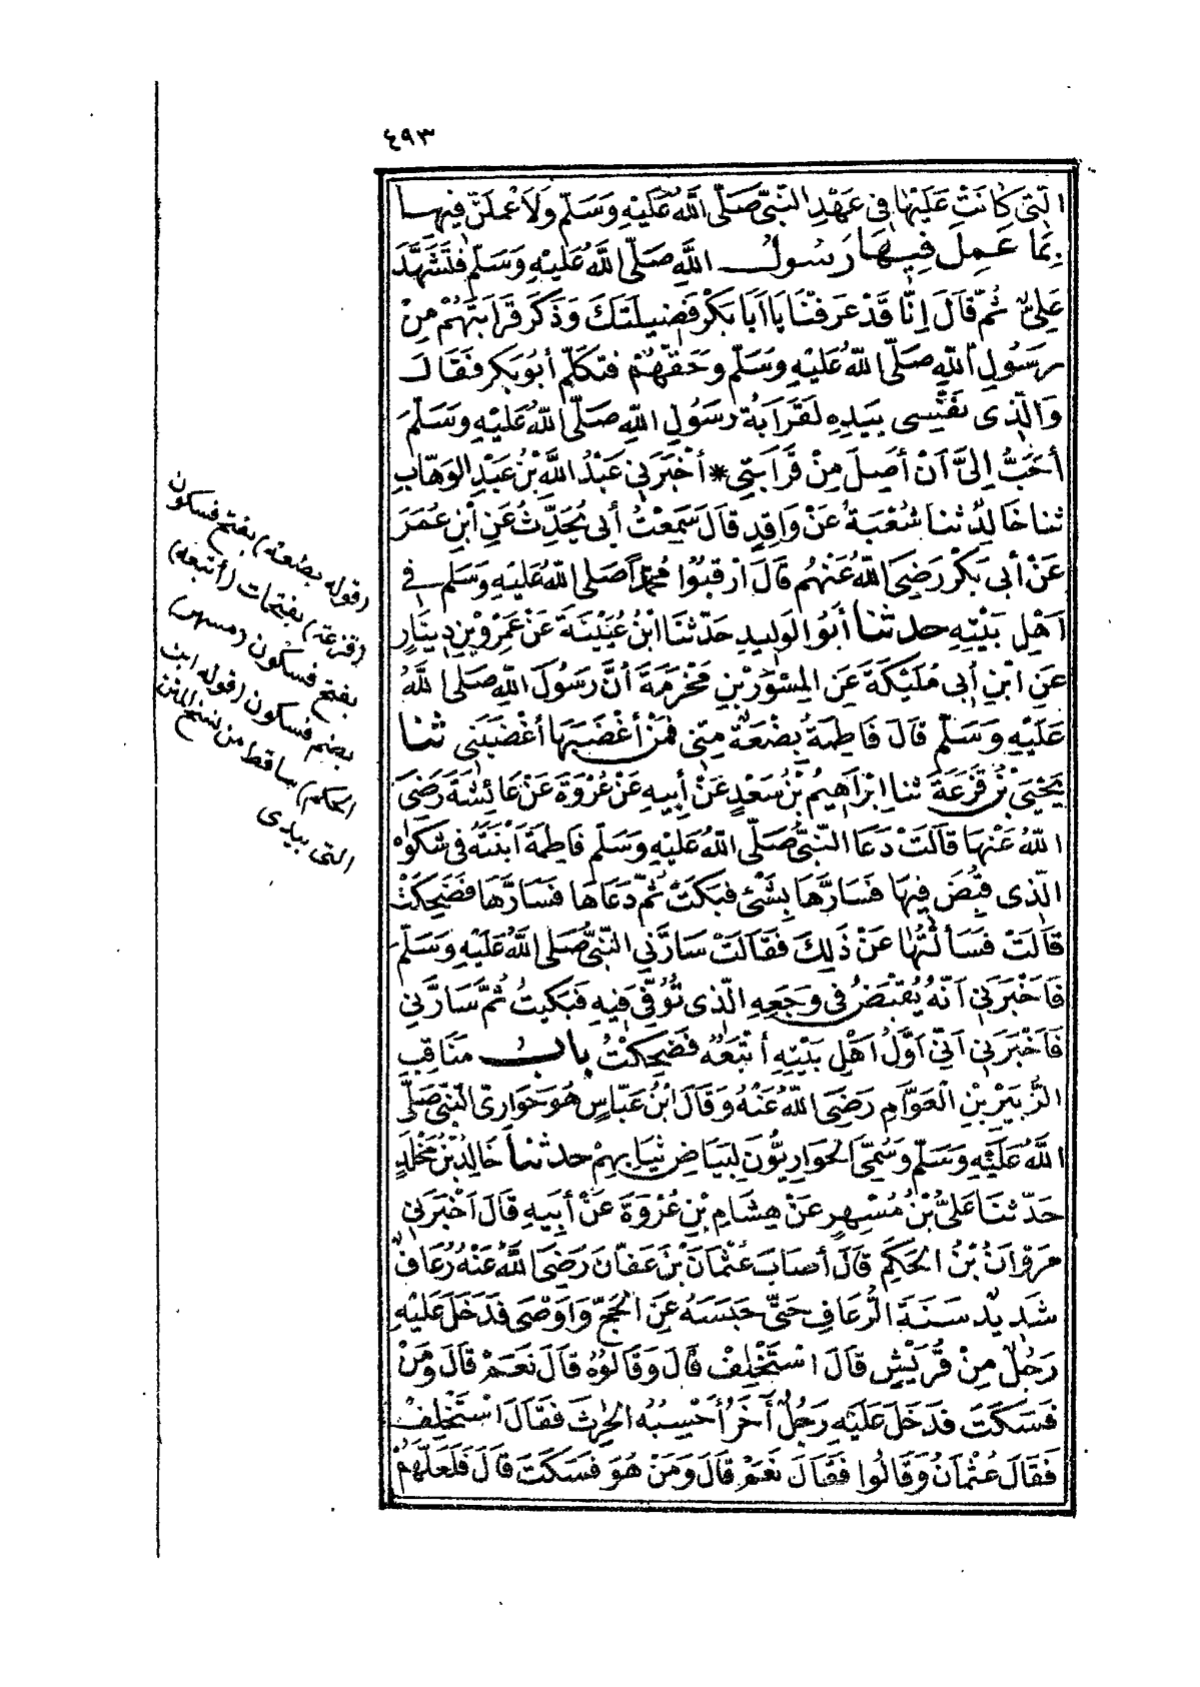 ٤٩٣
الَّتِي كَانَتْ عَلَيْهَا فِي عَهْدِ النَّبِيِّ صَلَّى اللَّهُ عَلَيْهِ وَسَلَّمَ وَلَأَعْمَلَنَّ فِيهَا
بِمَا عَمِلَ فِيهَا رَسُولُ اللَّهِ صَلَّى اللَّهُ عَلَيْهِ وَسَلَّمَ فَتَشَهَّدَ
عَلِيٌّ ثُمَّ قَالَ إِنَّا قَدْ عَرَفْنَا يَا أَبَا بَكْرٍ فَضِيلَتَكَ وَذَكَرَ قَرَابَتَهُمْ مِنْ
رَسُولِ اللَّهِ صَلَّى اللَّهُ عَلَيْهِ وَسَلَّمَ وَحَقَّهُمْ فَتَكَلَّمَ أَبُو بَكْرٍ فَقَالَ
وَالَّذِي نَفْسِي بِيَدِهِ لَقَرَابَةُ رَسُولِ اللَّهِ صَلَّى اللَّهُ عَلَيْهِ وَسَلَّمَ
أَحَبُّ إِلَيَّ أَنْ أَصِلَ مِنْ قَرَابَتِي * أَخْبَرَنِي عَبْدُ اللَّهِ بْنُ عَبْدِ الْوَهَّابِ
ثنا خَالِدٌ ثنا شُعْبَةُ عَنْ وَاقِدٍ قَالَ سَمِعْتُ أَبِي يُحَدِّثُ عَنِ ابْنِ عُمَرَ
عَنْ أَبِي بَكْرٍ رَضِيَ اللَّهُ عَنْهُمْ قَالَ ارْقُبُوا مُحَمَّدًا صَلَّى اللَّهُ عَلَيْهِ وَسَلَّمَ فِي
أَهْلِ بَيْتِهِ حدثنا أَبُو الْوَلِيدِ حَدَّثَنَا ابْنُ عُيَيْنَةَ عَنْ عَمْرِو بْنِ دِينَارٍ
عَنِ ابْنِ أَبِي مُلَيْكَةَ عَنِ الْمِسْوَرِ بْنِ مَخْرَمَةَ أَنَّ رَسُولَ اللَّهِ صَلَّى اللَّهُ
عَلَيْهِ وَسَلَّمَ قَالَ فَاطِمَةُ بَضْعَةٌ مِنِّي فَمَنْ أَغْضَبَهَا أَغْضَبَنِي ثنا
يَحْيَى بْنُ قَزَعَةَ ثنا إِبْرَاهِيمُ بْنُ سَعْدٍ عَنْ أَبِيهِ عَنْ عُرْوَةَ عَنْ عَائِشَةَ رَضِيَ
اللَّهُ عَنْهَا قَالَتْ دَعَا النَّبِيُّ صَلَّى اللَّهُ عَلَيْهِ وَسَلَّمَ فَاطِمَةَ ابْنَتَهُ فِي شَكْوَاهُ
الَّذِي قُبِضَ فِيهَا فَسَارَّهَا بِشَيْءٍ فَبَكَتْ ثُمَّ دَعَاهَا فَسَارَّهَا فَضَحِكَتْ
قَالَتْ فَسَأَلْتُهَا عَنْ ذَلِكَ فَقَالَتْ سَارَّنِي النَّبِيُّ صَلَّى اللَّهُ عَلَيْهِ وَسَلَّمَ
فَأَخْبَرَنِي أَنَّهُ يُقْبَضُ فِي وَجَعِهِ الَّذِي تُوُفِّيَ فِيهِ فَبَكَيْتُ ثُمَّ سَارَّنِي
فَأَخْبَرَنِي أَنِّي أَوَّلُ أَهْلِ بَيْتِهِ أَتْبَعُهُ فَضَحِكْتُ بَابُ مَنَاقِبِ
الزُّبَيْرِ بْنِ الْعَوَّامِ رَضِيَ اللَّهُ عَنْهُ وَقَالَ ابْنُ عَبَّاسٍ هُوَ حَوَارِيُّ النَّبِيِّ صَلَّى
اللَّهُ عَلَيْهِ وَسَلَّمَ وَسُمِّيَ الْحَوَارِيُّونَ لِبَيَاضِ ثِيَابِهِمْ حدثنا خَالِدُ بْنُ مَخْلَدٍ
حَدَّثَنَا عَلِيُّ بْنُ مُسْهِرٍ عَنْ هِشَامِ بْنِ عُرْوَةَ عَنْ أَبِيهِ قَالَ أَخْبَرَنِي
مَرْوَانُ بْنُ الْحَكَمِ قَالَ أَصَابَ عُثْمَانَ بْنَ عَفَّانَ رَضِيَ اللَّهُ عَنْهُ رُعَافٌ
شَدِيدٌ سَنَةَ الرُّعَافِ حَتَّى حَبَسَهُ عَنِ الْحَجِّ وَأَوْصَى فَدَخَلَ عَلَيْهِ
رَجُلٌ مِنْ قُرَيْشٍ قَالَ اسْتَخْلِفْ قَالَ وَقَالُوهُ قَالَ نَعَمْ قَالَ وَمَنْ
فَسَكَتَ فَدَخَلَ عَلَيْهِ رَجُلٌ آخَرُ أَحْسِبُهُ الْحَرِثَ فَقَالَ اسْتَخْلِفْ
فَقَالَ عُثْمَانُ وَقَالُوا فَقَالَ نَعَمْ قَالَ وَمَنْ هُوَ فَسَكَتَ قَالَ فَلَعَلَّهُمْ
(قوله بضعة) بفتح فسكون
(قزعة) بفتحات (أتبعه)
بفتح فسكون (مسهر)
بضم فسكون (قوله ابن
الحكم) ساقط من نسخ المتن
التى بيدى